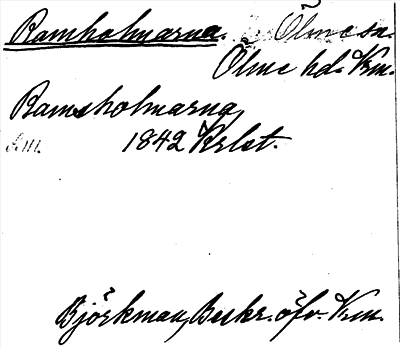 Ramholmarna. Ölme sn.
Ölme hd. Vrm.
Ramsholmarna
1842 Krlst.
Björkman, Beskr. öfv. Vrm.